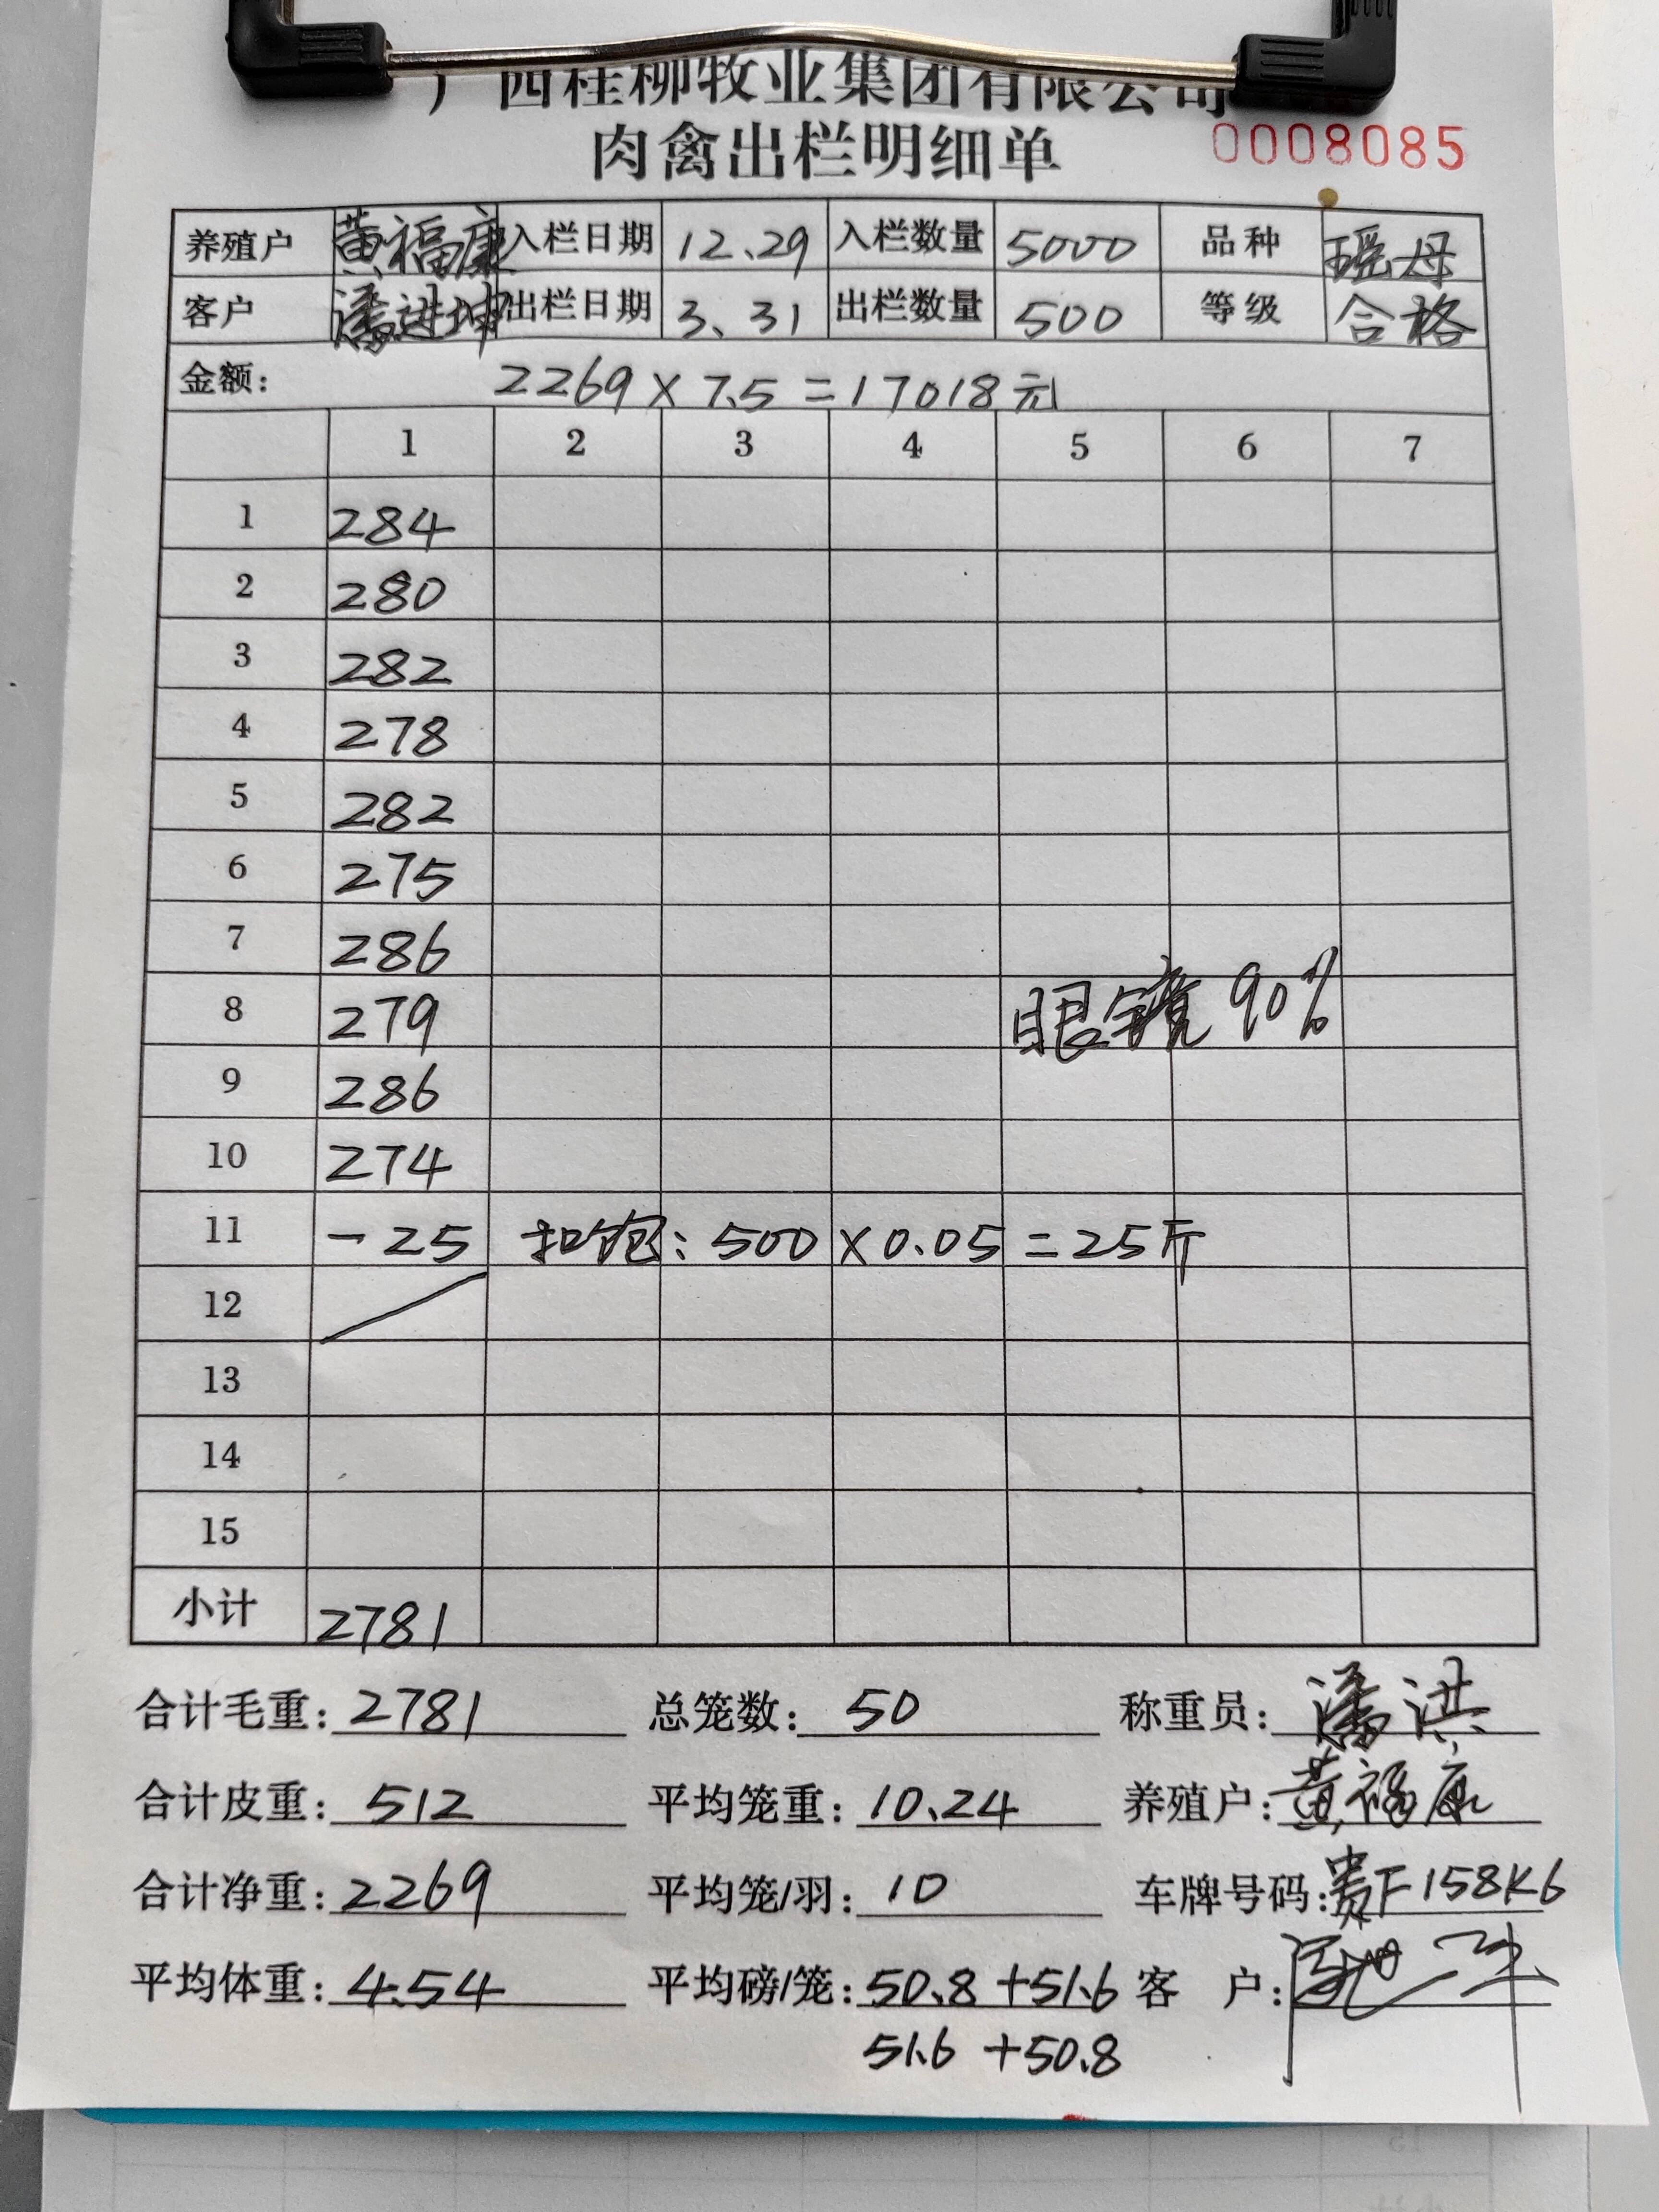 广西桂柳牧业集团有限公司
肉禽出栏明细单 0008085
养殖户 黄福康 入栏日期 12.29 入栏数量 5000 品种 瑶母
客户 潘进坤 出栏日期 3.31 出栏数量 500 等级 合格
金额: 2269×7.5=17018元
1 2 3 4 5 6 7
1 284
2 280
3 282
4 278
5 282
6 275
7 286
8 279 眼镜90%
9 286
10 274
11 -25 扣饱:500×0.05=25斤
12
13
14
15
小计 2781
合计毛重: 2781 总笼数: 50 称重员: 潘洪
合计皮重: 512 平均笼重: 10.24 养殖户: 黄福康
合计净重: 2269 平均笼/羽: 10 车牌号码: 贵F158K6
平均体重: 4.54 平均磅/笼: 50.8+51.6 客 户:
51.6+50.8